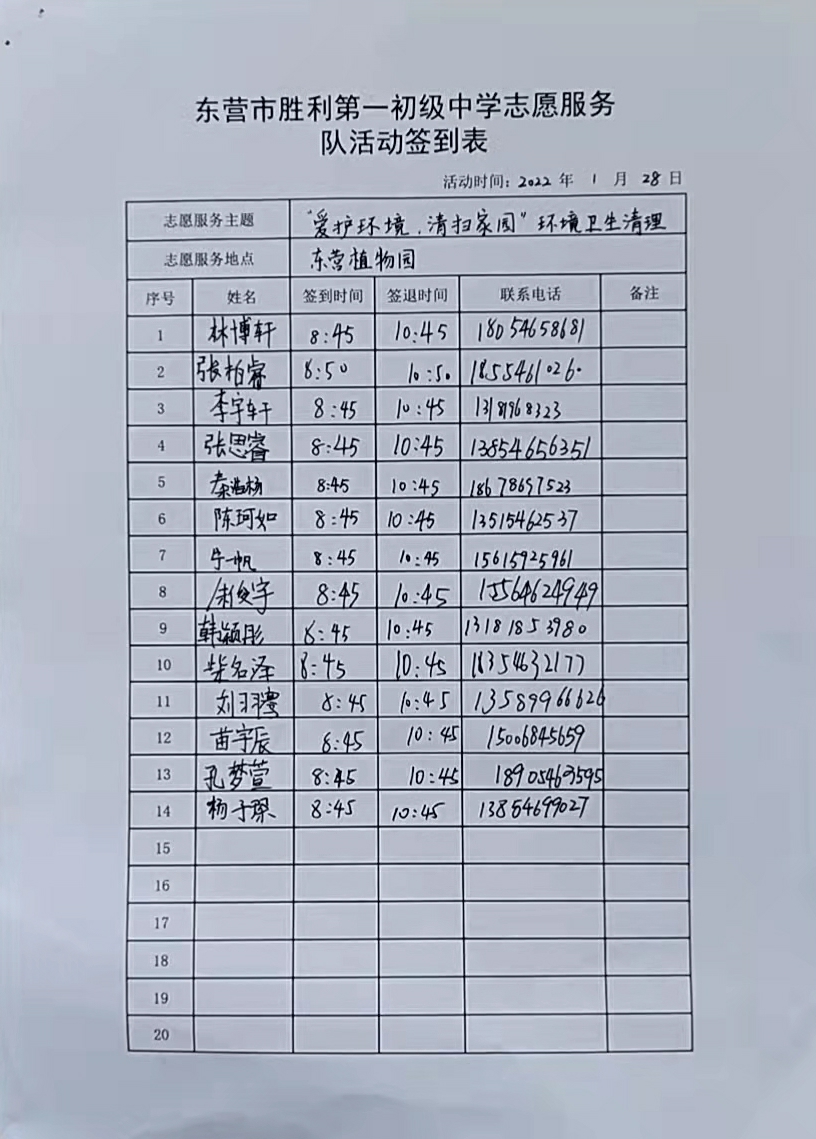 东营市胜利第一初级中学志愿服务
队活动签到表
活动时间：2022 年 1 月 28 日
志愿服务主题 “爱护环境，清扫家园”环境卫生清理
志愿服务地点 东营植物园
序号 姓名 签到时间 签退时间 联系电话 备注
1 林博轩 8:45 10:45 18054658681
2 张柏睿 8:50 10:50 18554610260
3 李宇轩 8:45 10:45
4 张思睿 8:45 10:45 13854656351
5 8:45 10:45 18678697523
6 陈珂如 8:45 10:45 13515462537
7 牛一帆 8:45 10:45 15615925961
8 8:45 10:45 15564624949
9 韩颖彤 8:45 10:45 13181853980
10 柴名泽 8:45 10:45 18354632177
11 8:45 10:45 13589966626
12 苗宇辰 8:45 10:45 15006845659
13 孔梦萱 8:45 10:45 18905463595
14 杨子琛 8:45 10:45 13854699027
15
16
17
18
19
20